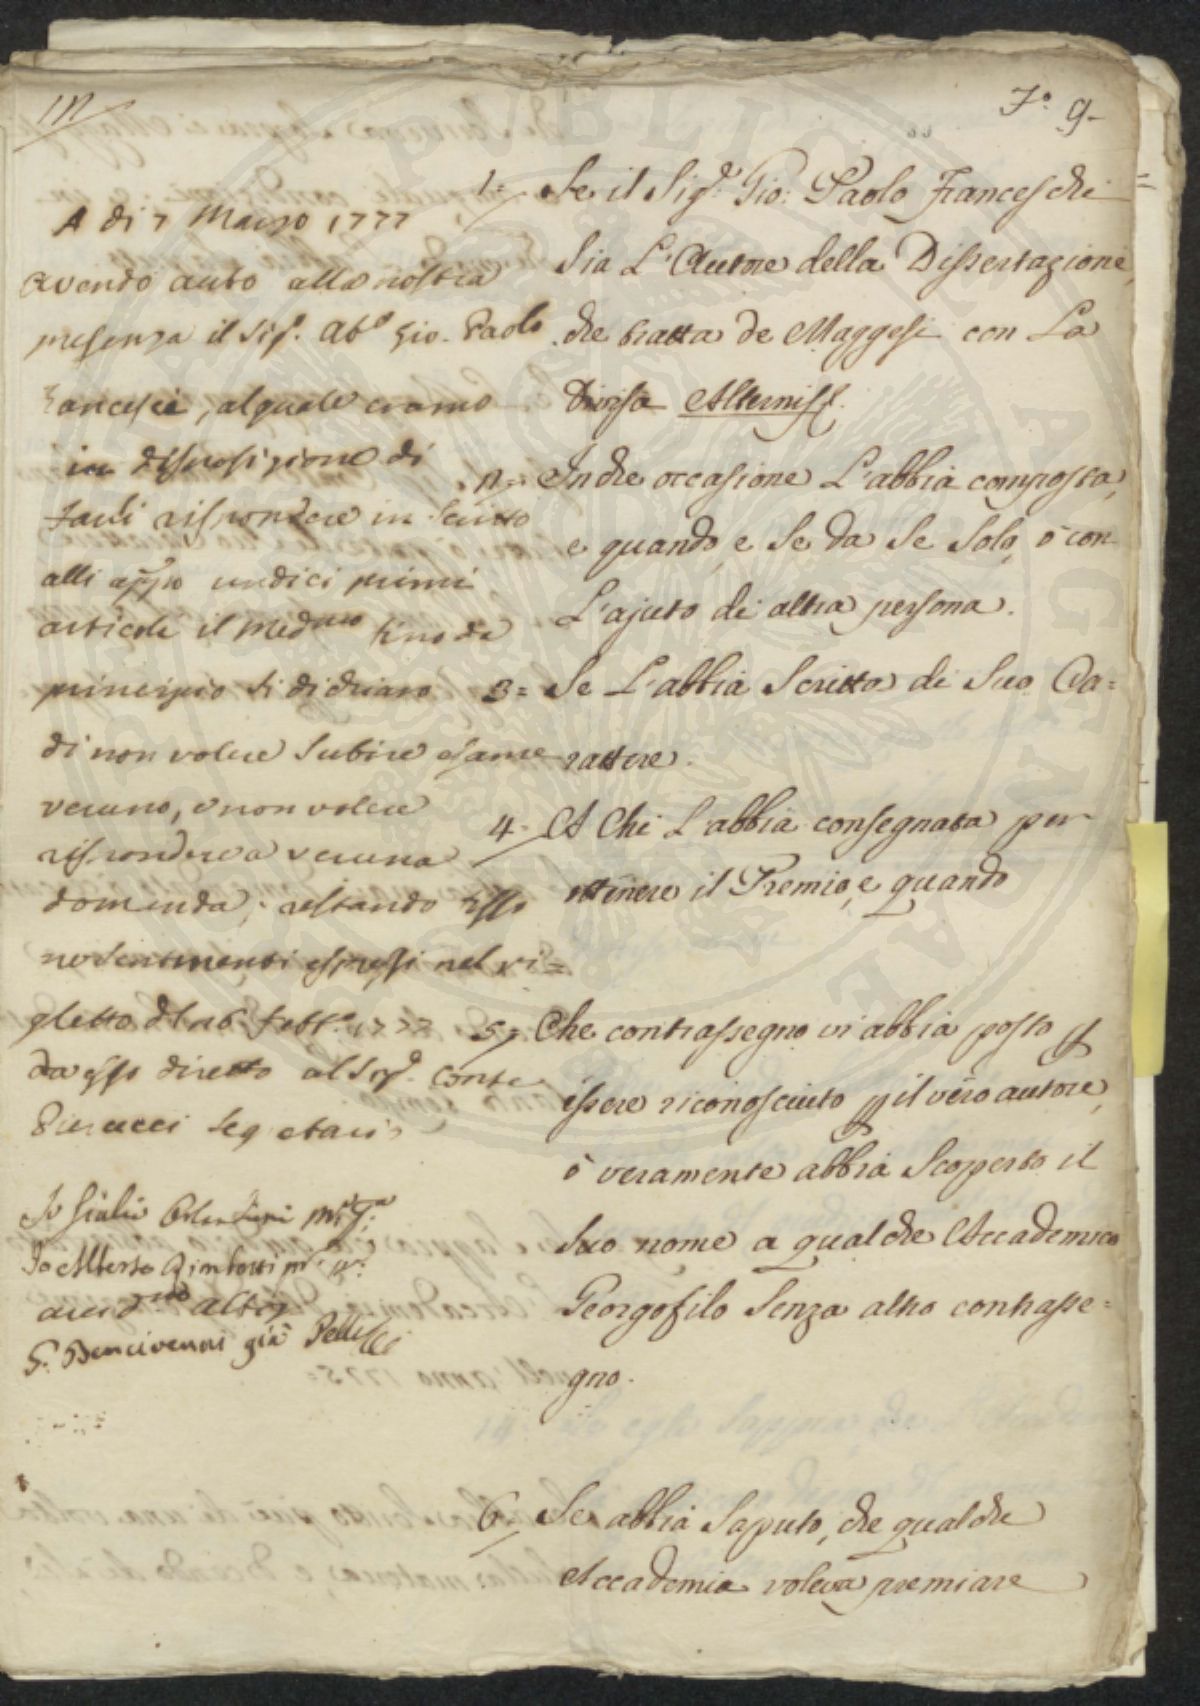 F.o 9-
A di 7 Marzo 1777
avendo auto alla nostra
presenza il Sig.r Ab.e Gio. Paolo
Francesci, al quale eramo
in disposizione di
farli rispondere in scritto
alli app.o undici primi
articoli il med.mo fino da
principio si dichiaro
di non volere subire esame
veruno, e non volere
rispondere a veruna
domanda, restando fisso
ne sentimenti espressi nel vi=
glietto de 26 febb.o 1777
da esso diretto al Sig.r Conte
Pierucci Segretario
Io Giulio Orlandini
Io Alberto Rimbotti
G. Bencivenni già Pelli
1.= Se il Sig.e Gio: Paolo Franceschi
sia L'Autore della Dissertazione,
che tratta de Maggesi con La
Divisa Alterniss.
2.= In che occasione L'abbia composta,
e quando, e se da se solo, ò con
L'ajuto di altra persona.
3= Se L'abbia Scritta di Suo Ca=
rattere.
4.= A Chi L'abbia consegnata per
ottenere il Premio, e quando
5= Che contrassegno vi abbia posto p
essere riconosciuto p il vero autore,
ò veramente abbia Scoperto il
Suo nome a qualche Accademico
Georgofilo Senza altro contrasse=
gno.
6. Se abbia Saputo, che qualche
Accademia voleva premiare